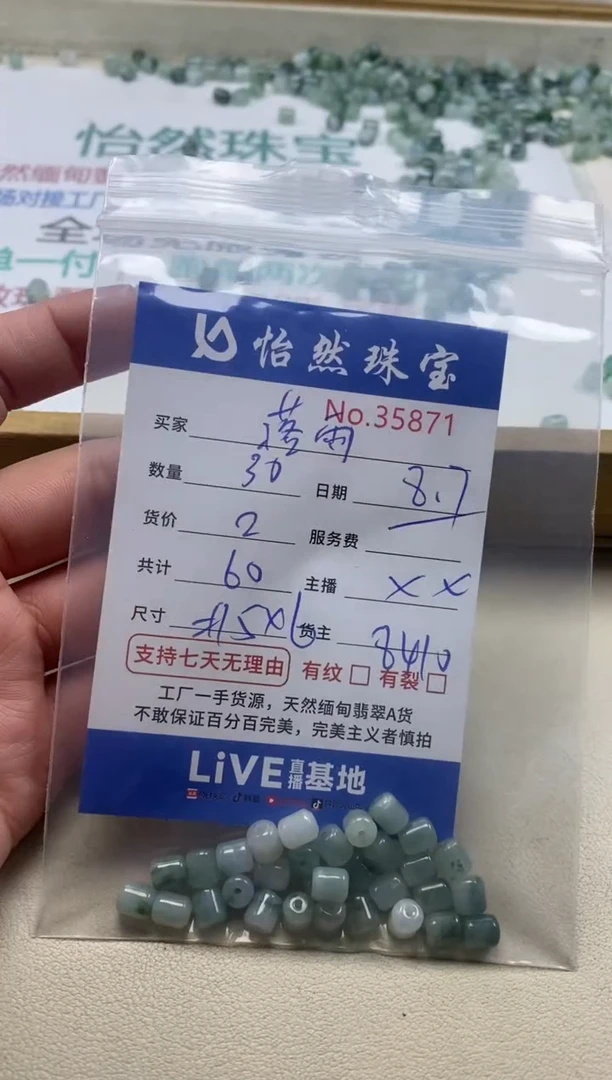 怡然珠宝
然缅甸翡
场对接工厂
单一付
怡然珠宝
No.35871
买家
数量 30 日期 8.7
货价 2 服务费
共计 60 主播 x x
尺寸 货主 8410
支持七天无理由 有纹 □ 有裂 □
工厂一手货源，天然缅甸翡翠A货
不敢保证百分百完美，完美主义者慎拍
LiVE 直播 基地